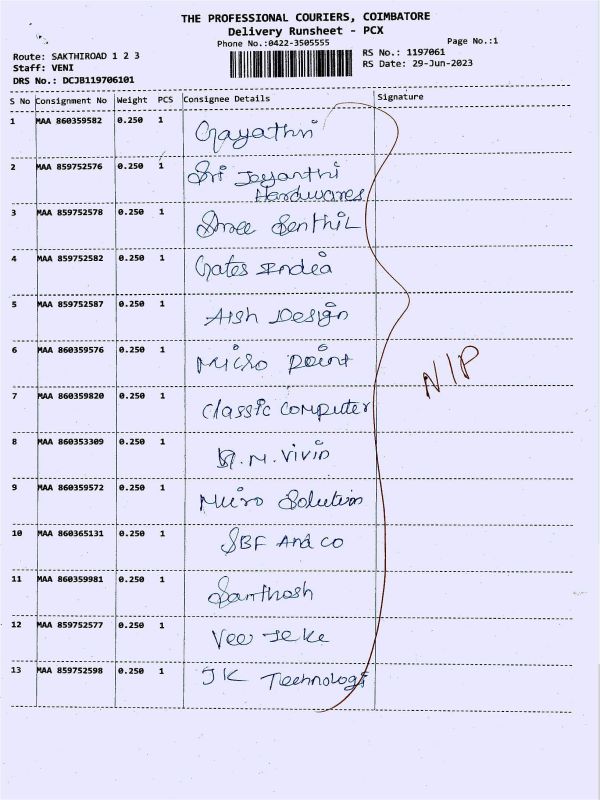 THE PROFESSIONAL COURIERS, COIMBATORE
Delivery Runsheet - PCX
Phone No.:0422-3505555
Page No.:1
Route: SAKTHIROAD 1 2 3
RS No.: 1197061
Staff: VENI
RS Date: 29-Jun-2023
DRS No.: DCJB119706101
S No Consignment No Weight PCS Consignee Details Signature
1 MAA 860359582 0.250 1 Gayathri
2 MAA 859752576 0.250 1 Sri Jayanthi
Hardwares
3 MAA 859752578 0.250 1 Shree Senthil
4 MAA 859752582 0.250 1 Gates India
5 MAA 859752587 0.250 1 Aish Design
6 MAA 860359576 0.250 1 Micro point
N/P
7 MAA 860359820 0.250 1 Classic Computer
8 MAA 860353309 0.250 1 M. Vivin
9 MAA 860359572 0.250 1 Micro Solution
10 MAA 860365131 0.250 1 SBF And Co
11 MAA 860359981 0.250 1 Santhosh
12 MAA 859752577 0.250 1 Vee Je Ke
13 MAA 859752598 0.250 1 JK Technologi